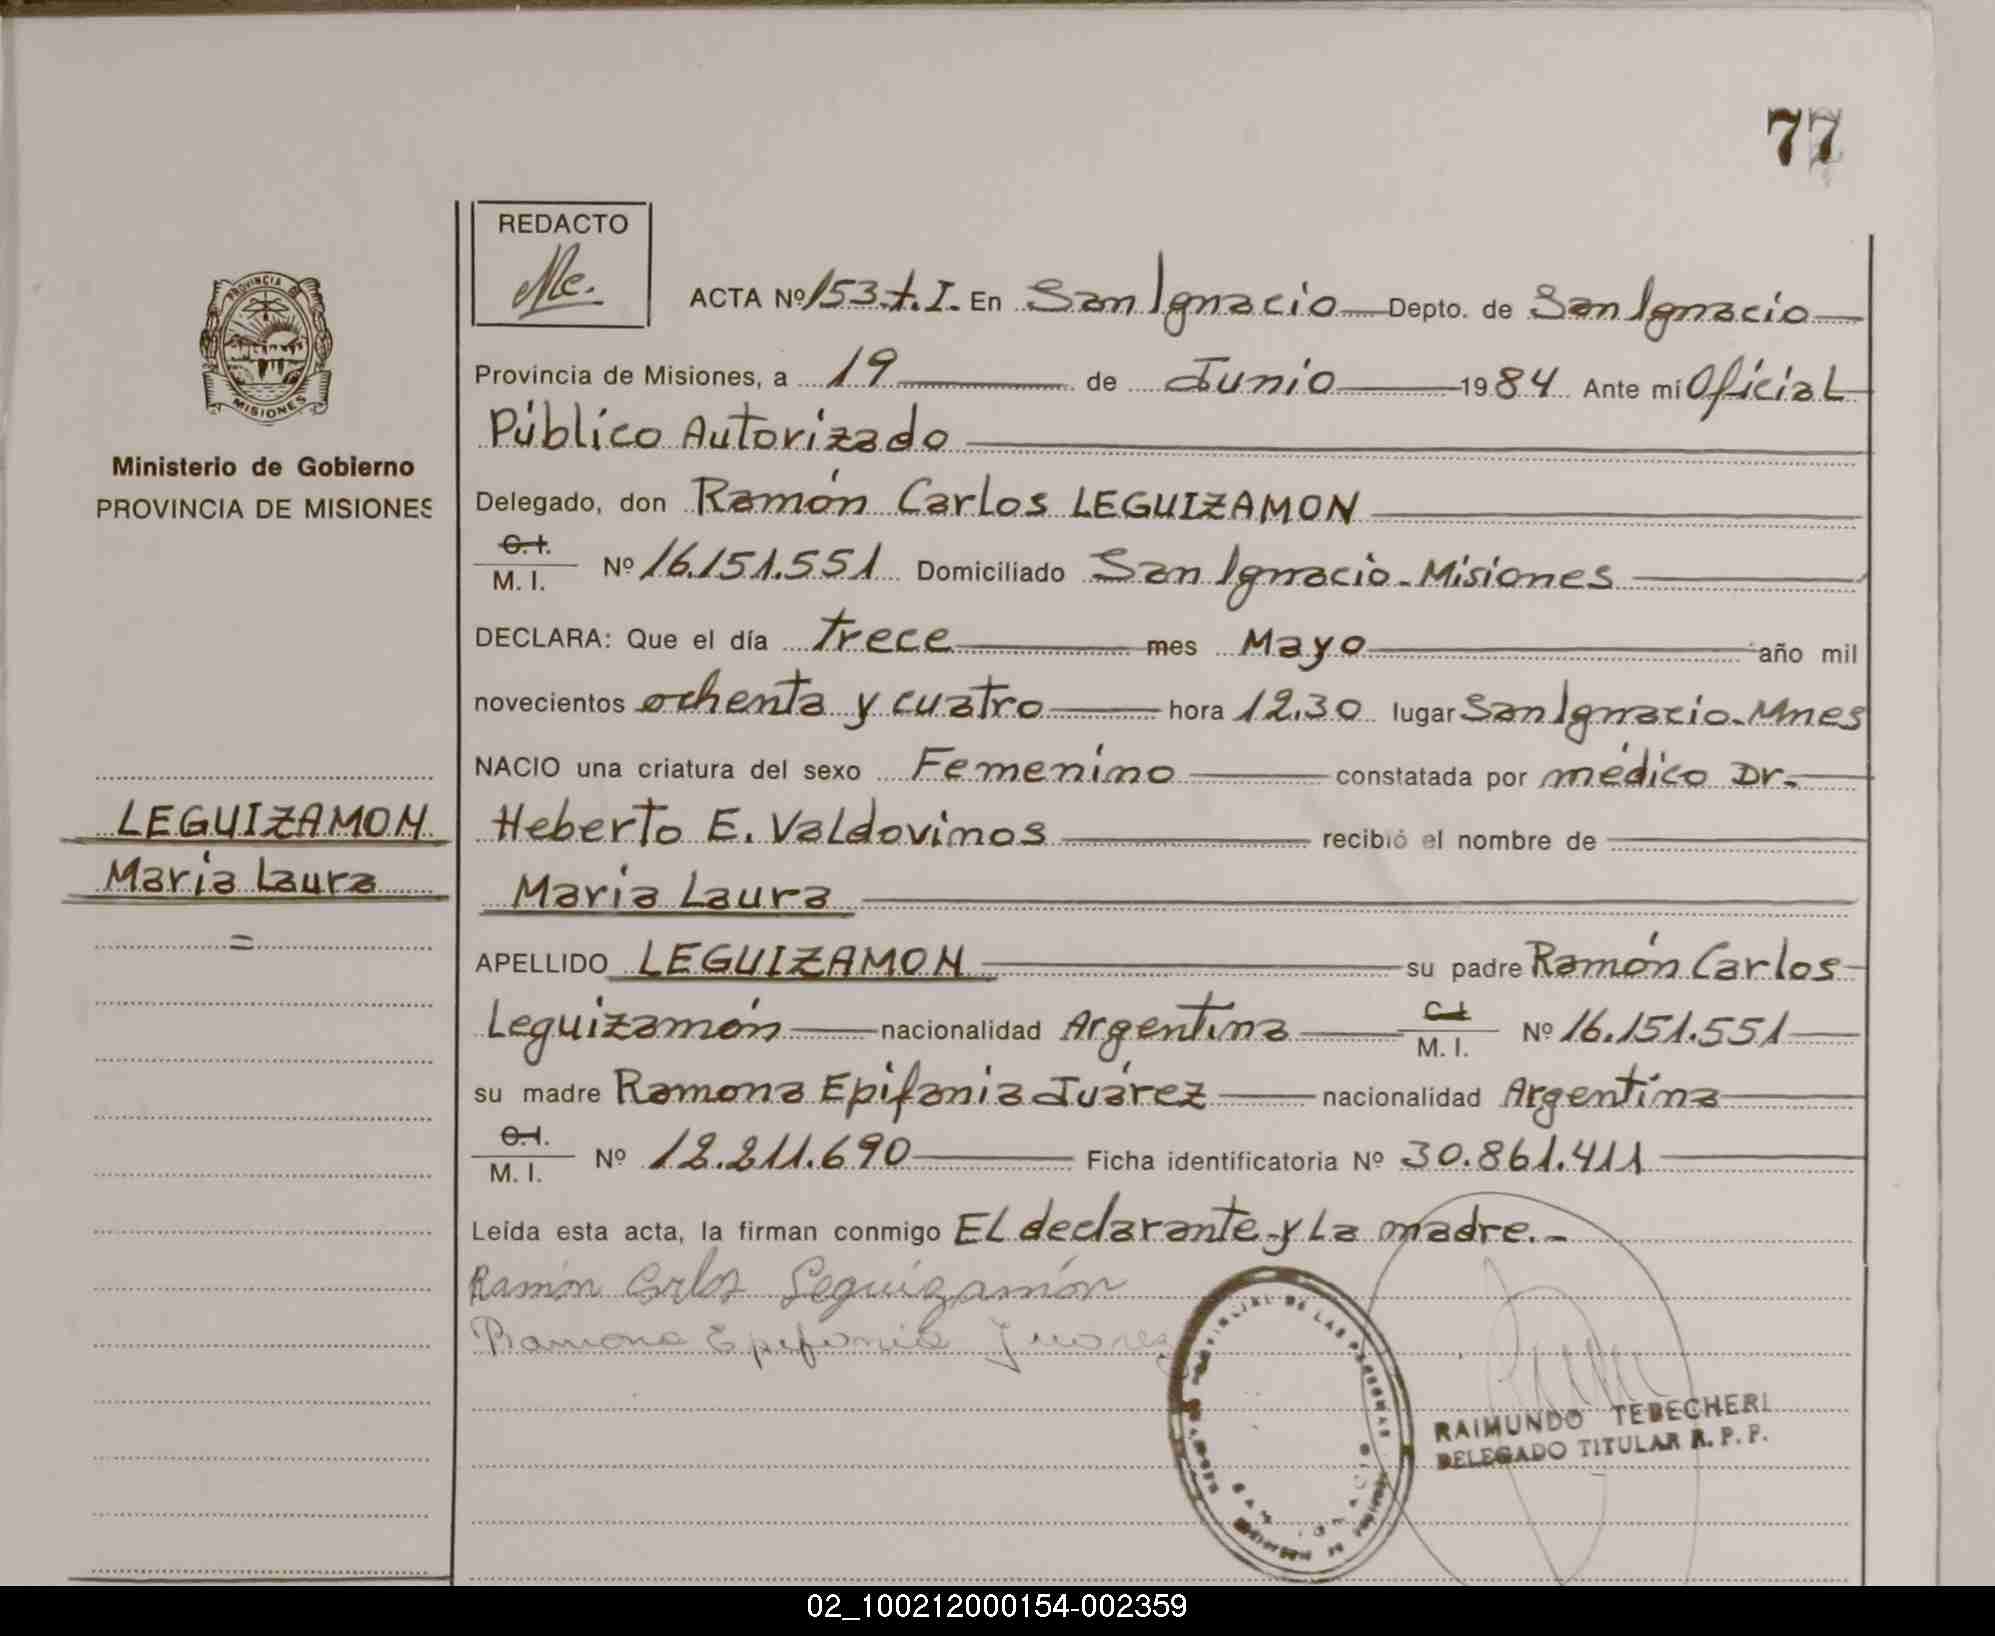 77
REDACTO
ACTA Nº 153.t.I. En San Ignacio Depto. de San Ignacio
Provincia de Misiones, a 19 de Junio 1984 Ante mí Oficial
Público Autorizado
Delegado, don Ramón Carlos LEGUIZAMON
C. I.
M. I. Nº 16.151.551 Domiciliado San Ignacio-Misiones
DECLARA: Que el día trece mes Mayo año mil
novecientos ochenta y cuatro hora 12.30 lugar San Ignacio-Mnes
NACIO una criatura del sexo Femenino constatada por médico Dr.
Heberto E. Valdovinos recibió el nombre de
Maria Laura
APELLIDO LEGUIZAMON su padre Ramón Carlos
Leguizamón nacionalidad Argentina C. I. M. I. Nº 16.151.551
su madre Ramona Epifania Juárez nacionalidad Argentina
C. I.
M. I. Nº 12.211.690 Ficha identificatoria Nº 30.861.411
Leída esta acta, la firman conmigo El declarante y La madre.-
Ramón Carlos Leguizamón
Ramona Epifania Juarez
RAIMUNDO TEBECHERI
DELEGADO TITULAR R. P. P.
PROVINCIA DE
MISIONES
Ministerio de Gobierno
PROVINCIA DE MISIONES
LEGUIZAMON
Maria Laura
=
02_100212000154-002359